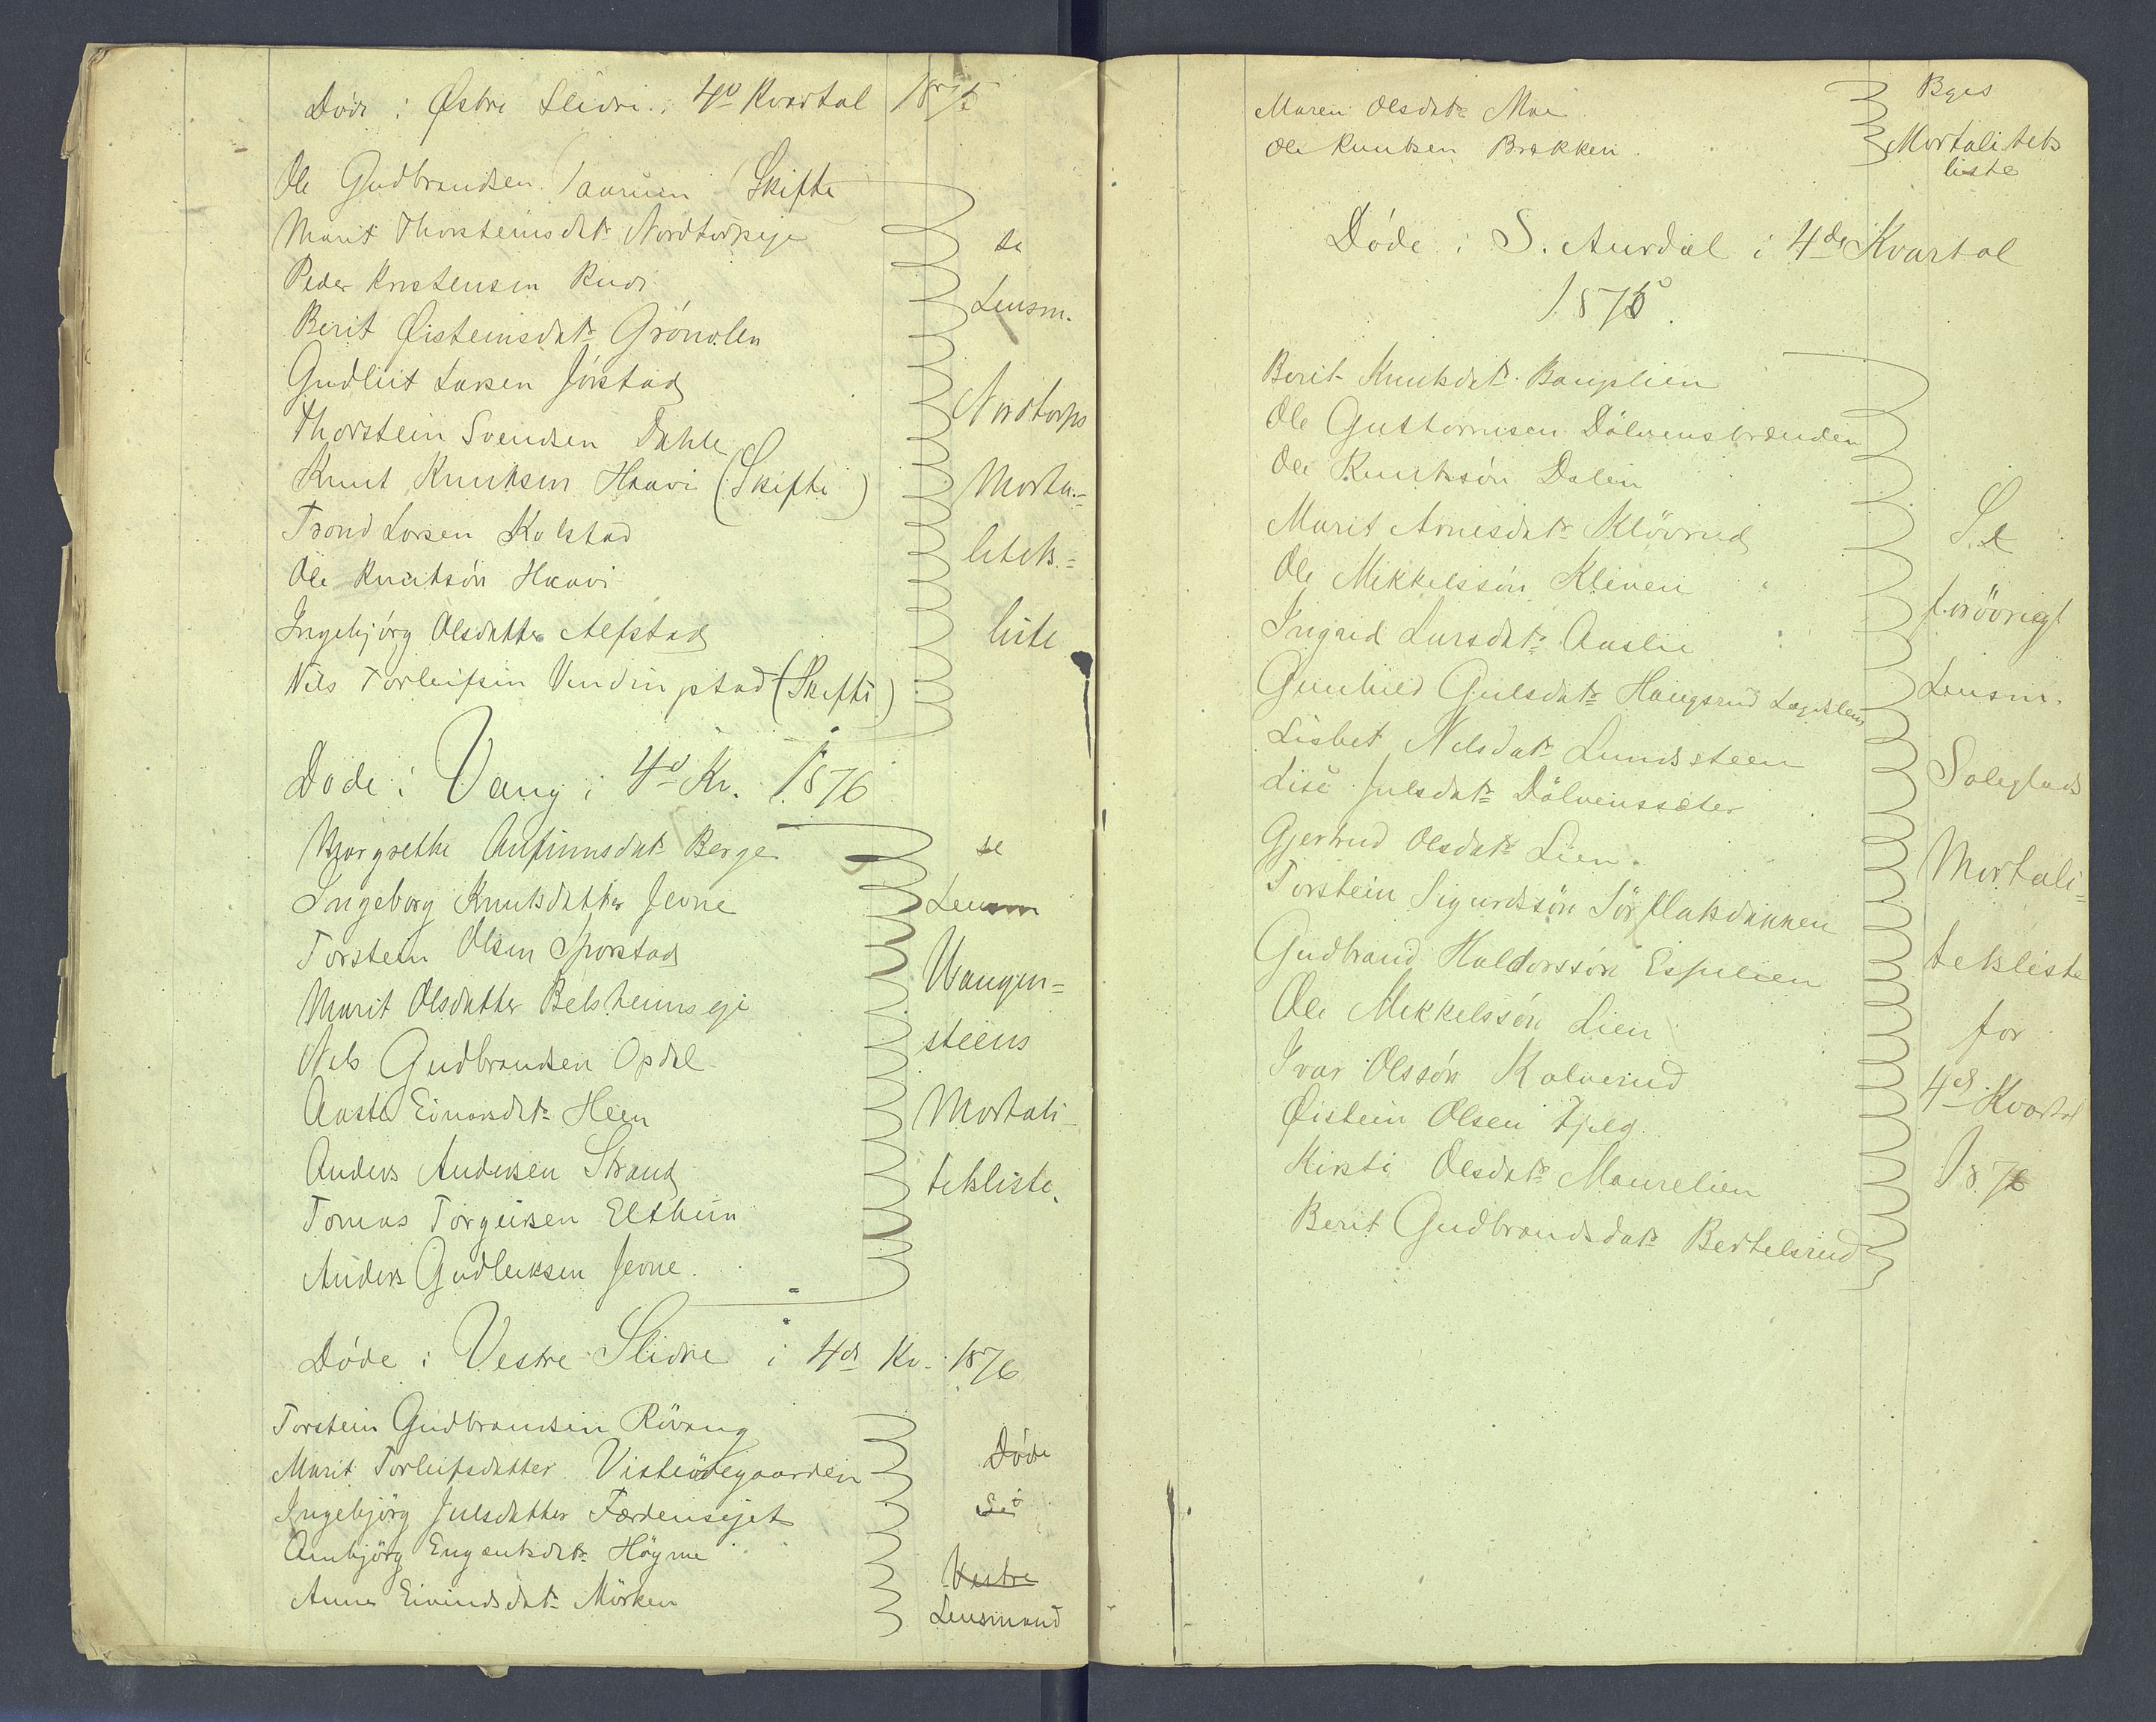 Døde i Østre Slidre i 4d Kvartal 1876
Ole Gudbrandsen (Skifte
Marit Thorsteinsdatr Nordtorpeje
Peder Kristensen Rudi
Berit Øisteinsdatr Grönolen
Gudleit Larsen Jörstad
Thorstein Svendsen Dahle
Knut Knutsen Haavi (Skifte)
Trond Larsen Kolstad
Ole Knutsön Haavi
Ingebjörg Olsdatter Alfstad
Nils Torleifsen (Skifte)
se
Lensm.
Nordtorps
Morta-
litets-
liste
Døde i Vang i 4d Kv. 1876
Margrethe Anfinnsdatr Berge
Ingeborg Knutsdatter Jevne
Torstein Olsen Sparstad
Marit Olsdatter Belsheimseje
Nils Gudbrandsen Opdal
Aaste Einarsdatr Heen
Anders Andersen Strand
Tomas Torgeirsen Elthun
Anders Gudleiksen Jevne
se
Lensm
Wangen-
steens
Mortali-
tetsliste
Døde i Vestre Slidre i 4de Kv. 1876
Torstein Gudbrandsen Rövang
Marit Torleifsdatter Visteödegaarden
Ingebjörg Julsdatter Færdensejet
Anbjörg Engautsdatr Högne
Anne Eivindsdatr Mörken
Døde
Se
Vestre
Lensmand
Maren Olsdatr Moe
Ole Knutsen Brækken
Byes
Mortalitets
liste
Døde i S. Aurdal i 4de Kvartal
1876.
Berit Knutsdatr Bauplien
Ole Guttormsen Dölvensbraaden
Ole Knutsön Dalen
Marit Arnesdatr Klövrud
Ole Mikkelssön Kleven
Ingrid Larsdatr Aaslie
Gunhild Gulsdatr Haugsrud
Lisbet Nilsdatr Lundssteen
Lise Julsdatr Dölvensseter
Gjertrud Olsdatr Lien
Torstein Sigurdssön Sör
Gudbrand Haldorssön Espelien
Ole Mikkelssön Lien
Ivar Olssön Kalverud
Øistein Olsen
Kirsti Olsdatr Maurelien
Berit Gudbrandsdatr Bertelsrud
Se
forövrigt
Lensm.
Soleglads
Mortali=
tetsliste
for
4de Kvartal
1876